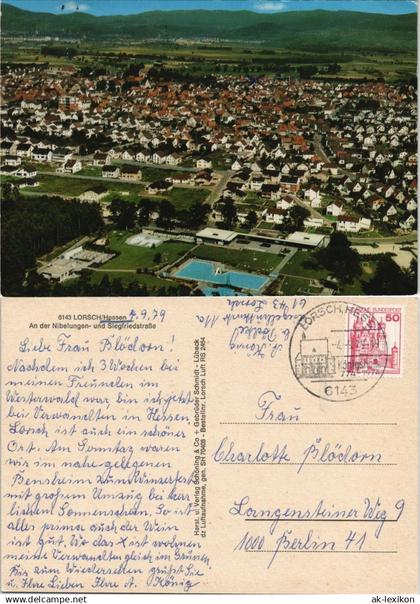 6143 LORSCH/Hessen
An der Nibelungen- und Siegfriedstraße
4.9.79
Liebe Frau Plödorn!
Nachdem ich 3 Wochen bei
meinen Freunden im
Westerwald war bin ich jetzt
bei Verwandten in Hessen
Lorsch ist auch ein schöner
Ort. Am Sonntag waren
wir im nahe gelegenen
Bensheim zum Winzerfest
mit großem Umzug bei herr
lichem Sonnenschein. So ist
alles prima auch der Wein
ist gut. Wo das X ist wohnen
meine Verwandten gleich im Grünen
Bis zum Wiedersehen grüßt Sie
u. Ihre Lieben Ihre A. König
Herst. u. Verlag Schöning & Co. + Gebrüder Schmidt - Lübeck
61 43 Lorsch
LORSCH, HESS
6143
50
Frau
Charlotte Plödorn
Langensteiner Weg 9
1000 Berlin 41
© ak-lexikon
ak-lexikon.com